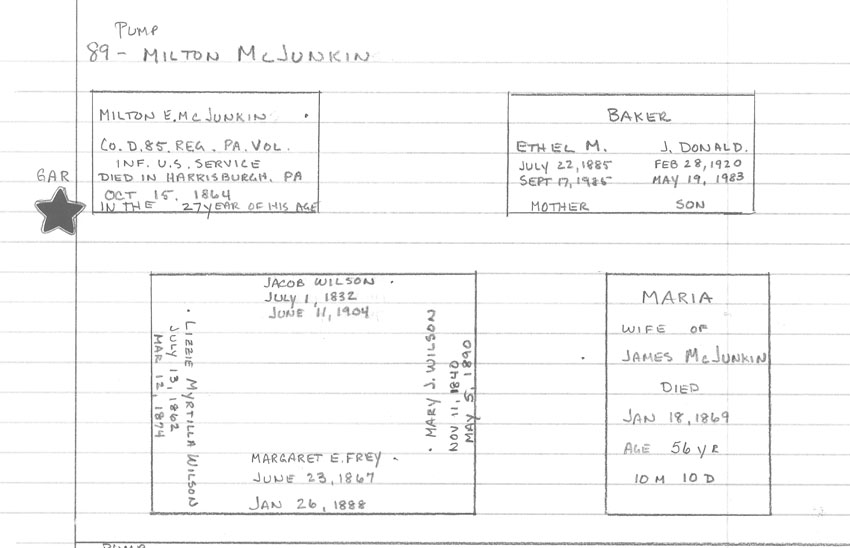 PUMP
89 - MILTON McJUNKIN
MILTON E. McJUNKIN .
CO. D. 85. REG. PA. VOL.
INF. U.S. SERVICE
DIED IN HARRISBURGH, PA
OCT 15. 1864
IN THE 27 YEAR OF HIS AGE
GAR
BAKER
ETHEL M. J. DONALD.
JULY 22, 1885 FEB 28, 1920
SEPT 17, MAY 19, 1983
MOTHER SON
JACOB WILSON .
JULY 1, 1832
JUNE 11, 1904
. LIZZIE MYRTILLA WILSON
JULY 13, 1862
MAR 12, 1874
. MARY J. WILSON
NOV 11, 1840
MAY 5, 1890
MARGARET E. FREY .
JUNE 23, 1867
JAN 26, 1888
MARIA
WIFE OF
. JAMES McJUNKIN
DIED
JAN 18, 1869
AGE 56 YR
10 M 10 D
PUMP